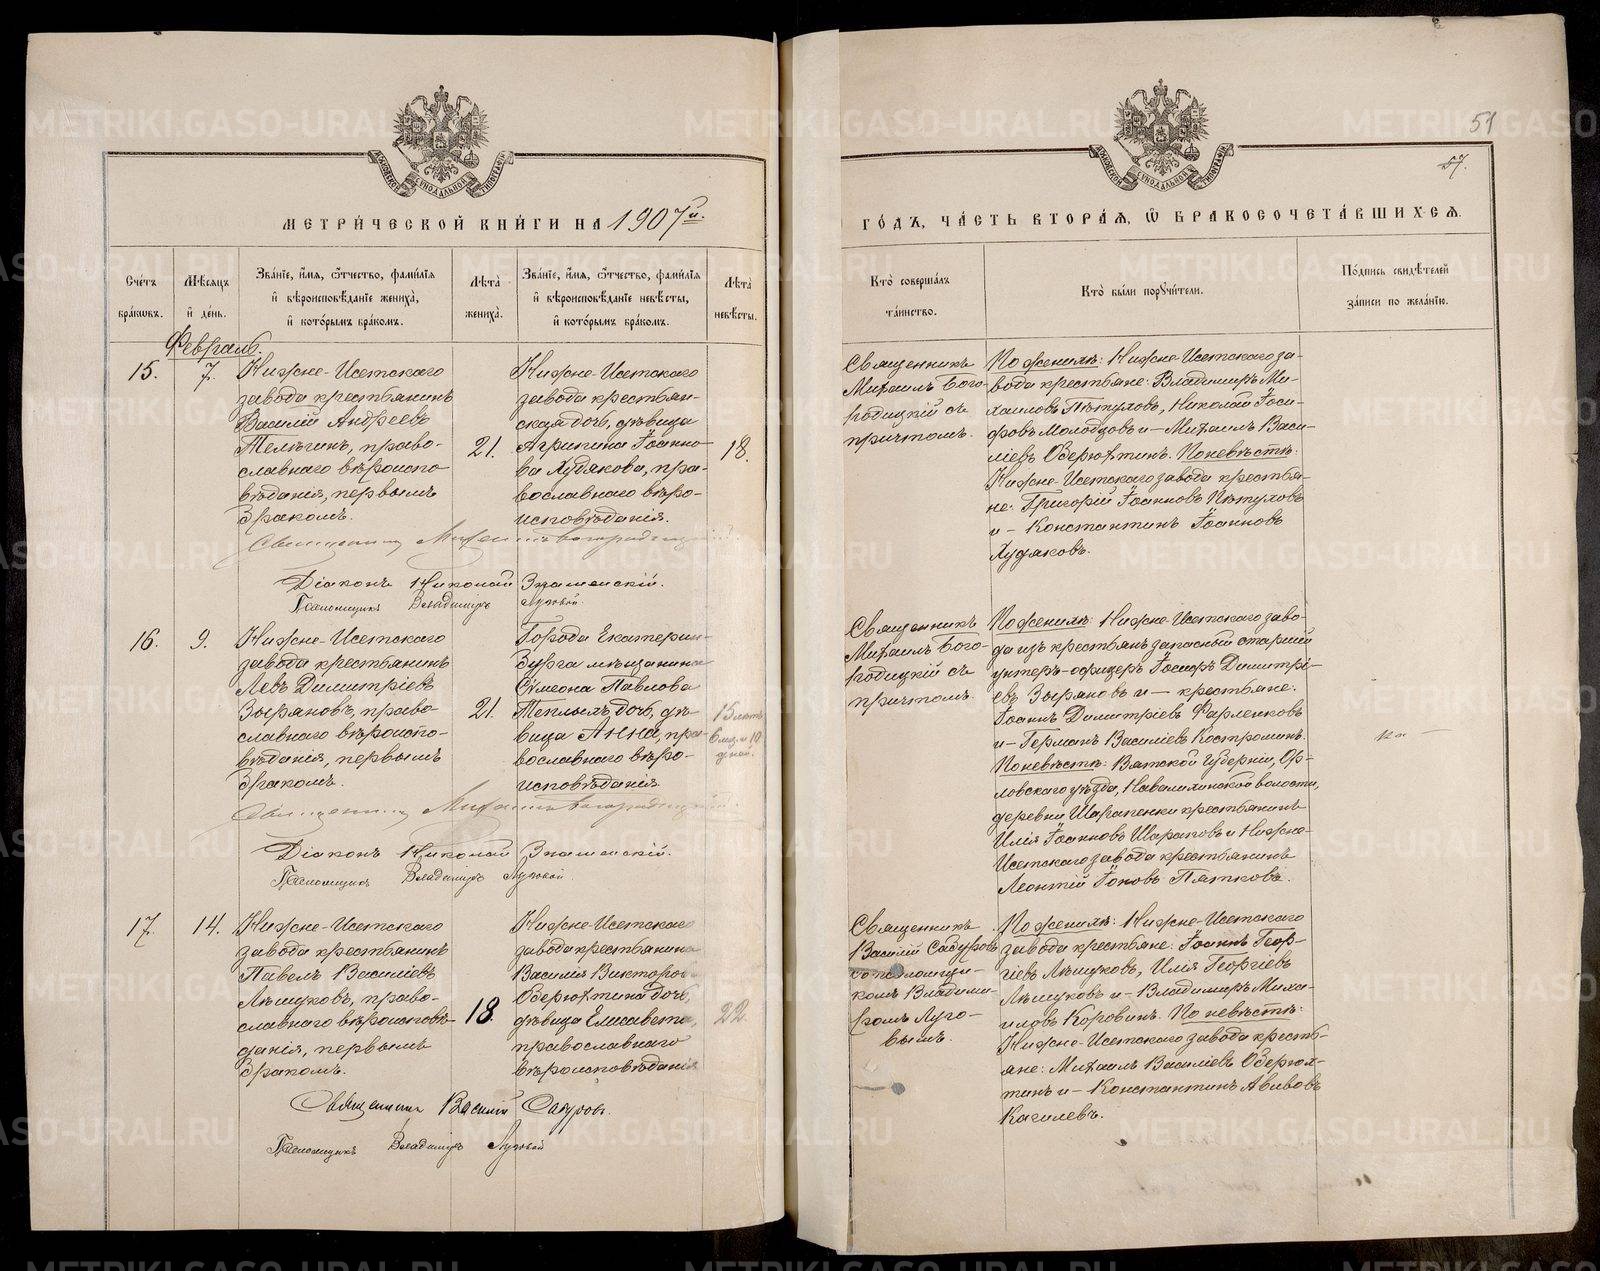 51
57.
МЕТРИЧЕСКОЙ КНИГИ НА 1907й.
ГОДЪ, ЧАСТЬ ВТОРАЯ, Ѡ БРАКОСОЧЕТАВШИХСЯ.
Счетъ браковъ.
Мѣсяцъ и день.
Званіе, имя, отчество, фамилія
и вѣроисповѣданіе жениха,
и которымъ бракомъ.
Лѣта жениха.
Званіе, имя, отчество, фамилія
и вѣроисповѣданіе невѣсты,
и которымъ бракомъ.
Лѣта невѣсты.
Кто совершалъ таинство.
Кто были поручители.
Подпись свидѣтелей
записи по желанію.
Февраль.
15.
7.
Нижне-Исетскаго
завода крестьянинъ
Василій Андреевъ
Телѣгинъ, право-
славнаго вѣроиспо-
вѣданія, первымъ
бракомъ.
21.
Нижне-Исетскаго
завода крестьян-
ская дочь, дѣвица
Агрипина Іоанно-
ва Худякова, пра-
вославнаго вѣро-
исповѣданія.
18.
Священникъ
Михаилъ Бого-
родицкій съ
причтомъ.
По женихѣ: Нижне-Исетскаго за-
вода крестьяне: Владимиръ Ми-
хаиловъ Пѣтуховъ, Николай Іоси-
фовъ Молодцовъ и - Михаилъ Васи-
ліевъ Оберюхтинъ. По невѣстѣ:
Нижне-Исетскаго завода крестья-
не: Григорій Іоанновъ Пѣтуховъ
и - Константинъ Іоанновъ
Худяковъ.
Священникъ Михаилъ Богородицкій
Діаконъ Николай Знаменскій.
Псаломщикъ Владимиръ Луговой
16.
9.
Нижне-Исетскаго
завода крестьянинъ
Левъ Димитріевъ
Зыряновъ, право-
славнаго вѣроиспо-
вѣданія, первымъ
бракомъ.
21.
Города Екатерин-
бурга мѣщанина
Сѵмеона Павлова
Теплыхъ дочь, дѣ-
вица Анна, пра-
вославнаго вѣро-
исповѣданія
15 лѣтъ
6 мѣс. и 10
дней.
Священникъ
Михаилъ Бого-
родицкій съ
причтомъ.
По женихѣ: Нижне-Исетскаго заво-
да изъ крестьянъ запасный старшій
унтеръ-офицеръ Іосифъ Димитрі-
евъ Зыряновъ и - крестьяне:
Іоаннъ Димитріевъ Фарленковъ
и - Германъ Василіевъ Костроминъ.
По невѣстѣ: Вятской губерніи, Ор-
ловскаго уѣзда,
деревни крестьянинъ
Илія Іоанновъ Шараповъ и Нижне-
Исетскаго завода крестьянинъ
Леонтій Іоновъ Пятковъ.
Священникъ Михаилъ Богородицкій
Діаконъ Николай Знаменскій.
Псаломщикъ Владимиръ Луговой.
17.
14.
Нижне-Исетскаго
завода крестьянинъ
Павелъ Василіевъ
Лѣшуковъ, право-
славнаго вѣроисповѣ-
данія, первымъ
бракомъ.
18.
Нижне-Исетскаго
завода крестьянина
Василія Викторова
Оберюхтина дочь,
дѣвица Елисавета,
православнаго
вѣроисповѣданія
22.
Священникъ
Василій Сатуровъ
со псаломщи-
комъ Владими-
ромъ Луго-
вымъ.
По женихѣ: Нижне-Исетскаго
завода крестьяне: Іоаннъ Геор-
гіевъ Лѣшуковъ, Илія Георгіевъ
Лѣшуковъ и - Владимиръ Миха-
иловъ Коровинъ. По невѣстѣ:
Нижне-Исетскаго завода кресть-
яне: Михаилъ Василіевъ Оберюх-
тинъ и - Константинъ Авивовъ
Кагилевъ.
Священникъ Василій Сатуровъ.
Псаломщикъ Владимиръ Луговой
METRIKI.GASO-URAL.RU